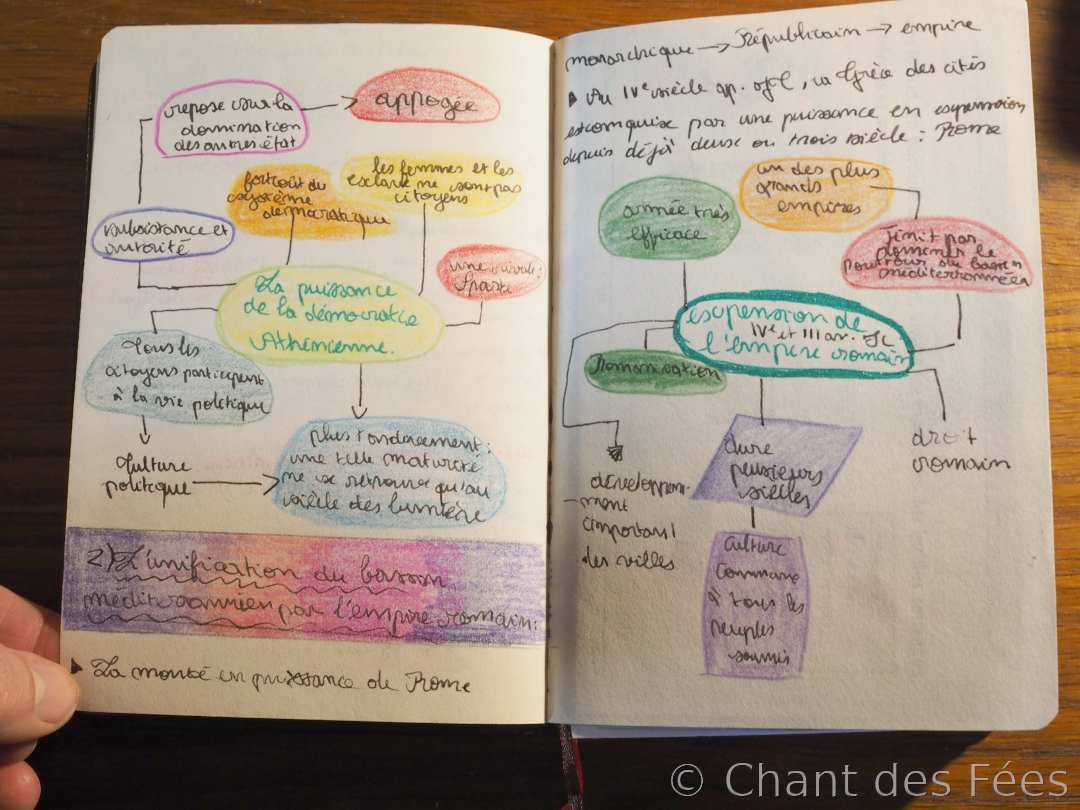 repose sur la
domination
des autres état
appogée
les femmes et les
esclave ne sont pas
citoyens
système
démocratique
subsistance et
autorité
une rival :
Sparte
La puissance
de la démocratie
Athénienne.
Tous les
citoyens participent
à la vie politique
Culture
politique
plus fondacement :
une telle maturité
ne se retrouve qu'au
siècle des lumière
2) L'unification du bassin
méditerranéen par l'empire romain :
La monté en puissance de Rome
monarchique → Républicain → empire
Au IVe siècle ap. JC, la Grèce des cités
est conquise par une puissance en expension
depuis déjà deux ou trois siècle : Rome
armée très
efficace
un des plus
grands
empires
Finit par
dominer le
pourtour du bassin
méditerranéen
expension de
IVe et III av. JC
l'empire romain
Romanisation
droit
romain
dure
plusieurs
siècles
développe-
ment
important
des villes
Culture
Commune
à tous les
peuples
soumis
© Chant des Fées